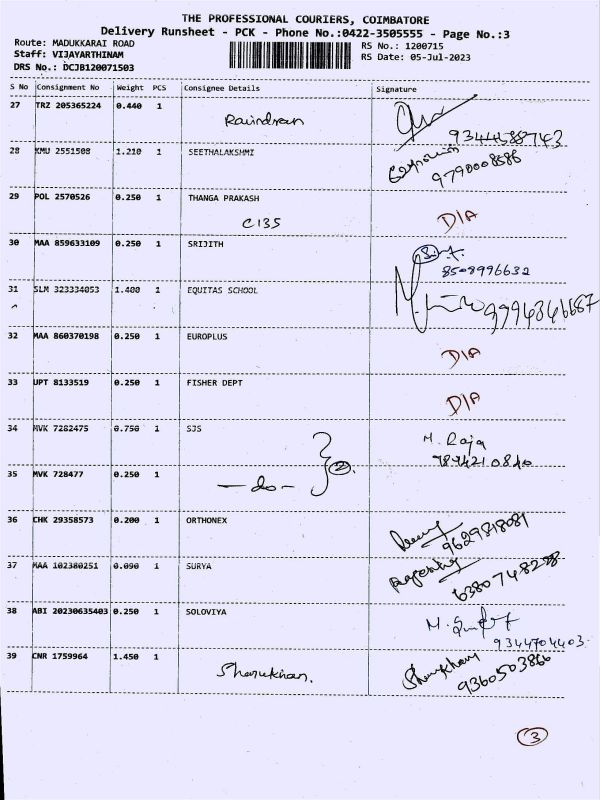 THE PROFESSIONAL COURIERS, COIMBATORE
Delivery Runsheet - PCK - Phone No.:0422-3505555 - Page No.:3
Route: MADUKKARAI ROAD
Staff: VIJAYARTHINAM
DRS No.: DCJB120071503
RS No.: 1200715
RS Date: 05-Jul-2023
S No Consignment No Weight PCS Consignee Details Signature
27 TRZ 205365224 0.440 1
Ravindran
9344588743
28 KMU 2551508 1.210 1 SEETHALAKSHMI
9790008586
29 POL 2570526 0.250 1 THANGA PRAKASH
C135 D/A
30 MAA 859633109 0.250 1 SRIJITH
8508996632
31 SLM 323334053 1.400 1 EQUITAS SCHOOL
9994346687
32 MAA 860370198 0.250 1 EUROPLUS
D/A
33 UPT 8133519 0.250 1 FISHER DEPT
D/A
34 MVK 7282475 0.750 1 SJS
M. Raja
7894210840
35 MVK 728477 0.250 1
-do- } 2
36 CHK 29358573 0.200 1 ORTHONEX
9629818081
37 MAA 102380251 0.090 1 SURYA
6380748298
38 ABI 20230635403 0.250 1 SOLOVIYA
9344704403
39 CNR 1759964 1.450 1
Sharukhan.
Sharukhan
9360503866
3